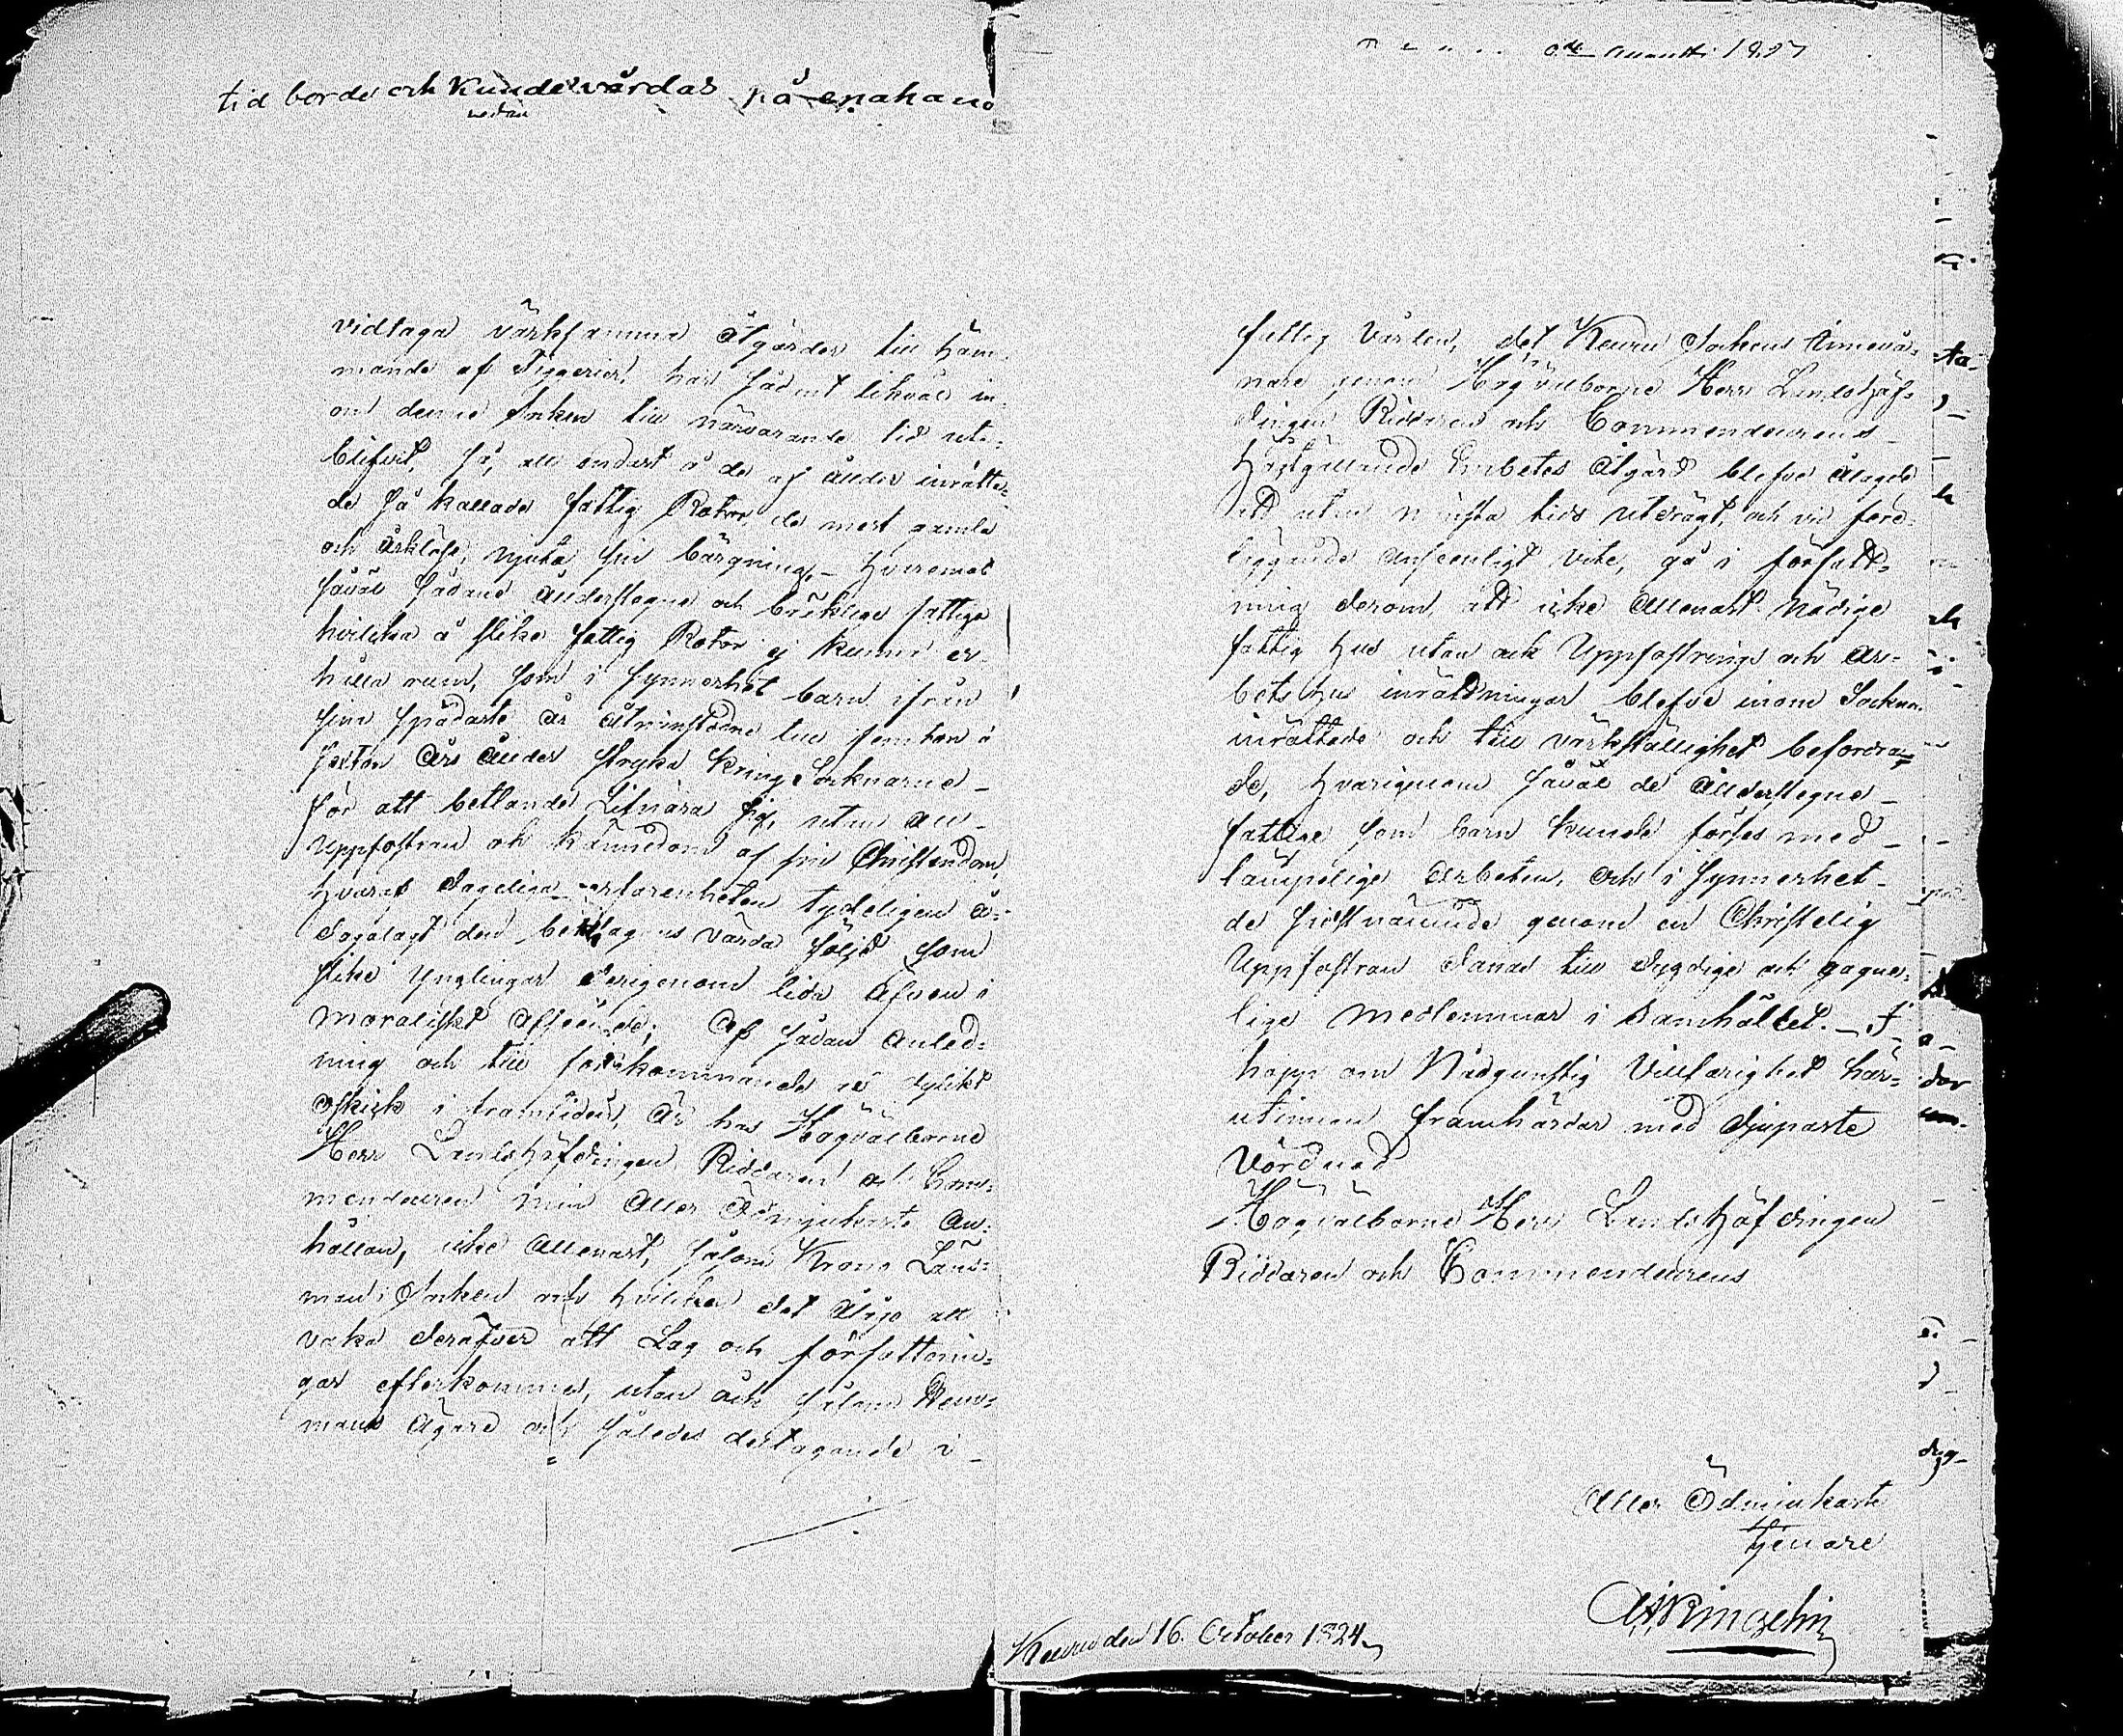 tid borde och Kunde vårdas på enahand
nedan
vidtaga värksamma åtgärder till häm-
mande af Tiggeriet, har sådant likväl in-
om denne Socken till närvarande tid ute-
blifvit, så, att endast å de af ålder inrätta-
de så kallade fattig Rotar, de mest gamla
och orklöse, njuta sin bärgning,- hvaremot
såväl sådane ålderstegne och bräklige fattige
hvilka å slike fattig Rotor ej kunna er-
hålla rum, som i synnerhet barn ifrån
sina spädaste år åtminstone till femton à
sexton års ålder stryka kring Socknarne -
för att betlande Lifnära sig, utan all
Uppfostran och kännedom af sin Christendom,
hvaraf dageliga erfarenheten tydeligen å-
dagalagt den beklagans värda följd som
slike ynglingar derigenom lida äfven i
moraliskt afseende; Af sådan anled-
ning och till förekommande af dylikt
oskick i framtiden, är hos Högvälborne
Herr Landshöfdingen Riddaren och Com-
mendeuren min Aller Ödmjukaste an-
hållan, icke allenast, såsom Krono Läns-
man i Socken och hvilken det åligo att
vaka deröfver att Lag och författnin-
gar efterkommes, utan ock såsom Hem-
mans Ägare och således deltagande i -
o de Augusti 1827
fattig Vården, det Keuru Sockens Innevå-
nare genom Högvälborne Herr Landshöf-
dingen Riddaren och Commendeurens
Högtgällande Embetes åtgärd blefve ålagde
att utan minsta tids utdrägt, och vid före-
läggande ansenligt vite, gå i författ-
ning derom, att icke allenast nödige
fattig hus utan ock Uppfostrings och Ar-
bets hus inrättningar blefve inom Socknen
inrättade och till värkställighet befordra-
de, hvarigenom såväl de ålderstegne
fattige som barn kunde förses med
lämpelige arbeten, och i synnerhet
de sistnämnde genom en Christelig
Uppfostran danas till dygdige och gagne-
lige medlemmar i samhället. - I
hopp om Nådgunstig Villfarighet här-
utinnan framhärdar med djupaste
Vördnad
Högvälborne Herr Landshöfdingen
Riddaren och Commendeurens
Aller Ödmjukaste
tjenare
Keuru den 16. October 1824